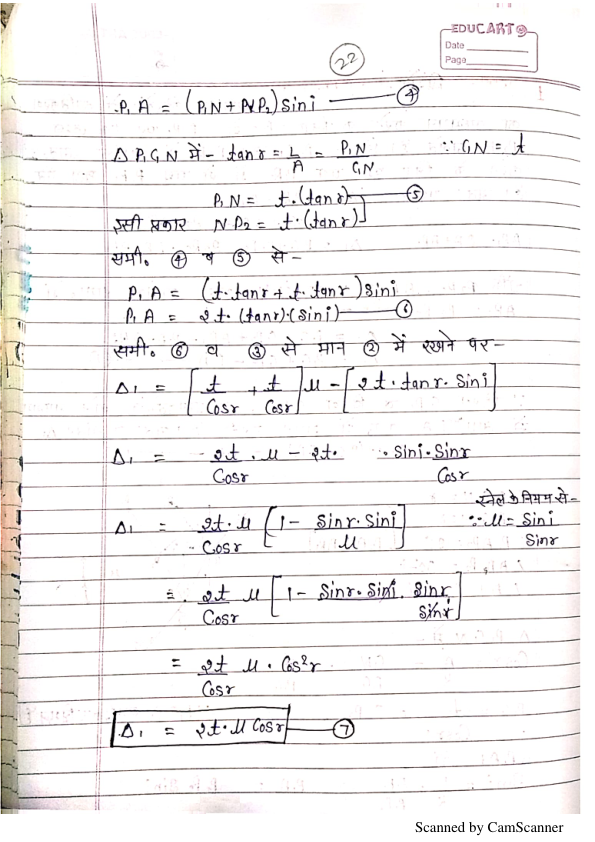 EDUCART
Date
Page
22
P₁A = (P₁N + NP₂) Sin i — ④
Δ P₁GN में - tan r = L/A = P₁N/GN ∵ GN = t
P₁N = t·(tan r) — ⑤
इसी प्रकार NP₂ = t·(tan r)
समी. ④ व ⑤ से -
P₁A = (t·tan r + t·tan r) Sin i
P₁A = 2t·(tan r)·(Sin i) — ⑥
समी. ⑥ व ③ से मान ② में रखने पर -
Δ₁ = [t/Cos r + t/Cos r] μ - [2t·tan r·Sin i]
Δ₁ = 2t·μ/Cos r - 2t· · Sin i·Sin r/Cos r
स्नेल के नियम से -
Δ₁ = 2t·μ/Cos r [1 - Sin r·Sin i/μ] ∵ μ = Sin i/Sin r
= 2t/Cos r μ [1 - Sin r·Sin i·Sin r/Sin i]
= 2t/Cos r μ·Cos² r
Δ₁ = 2t·μ Cos r — ⑦
Scanned by CamScanner